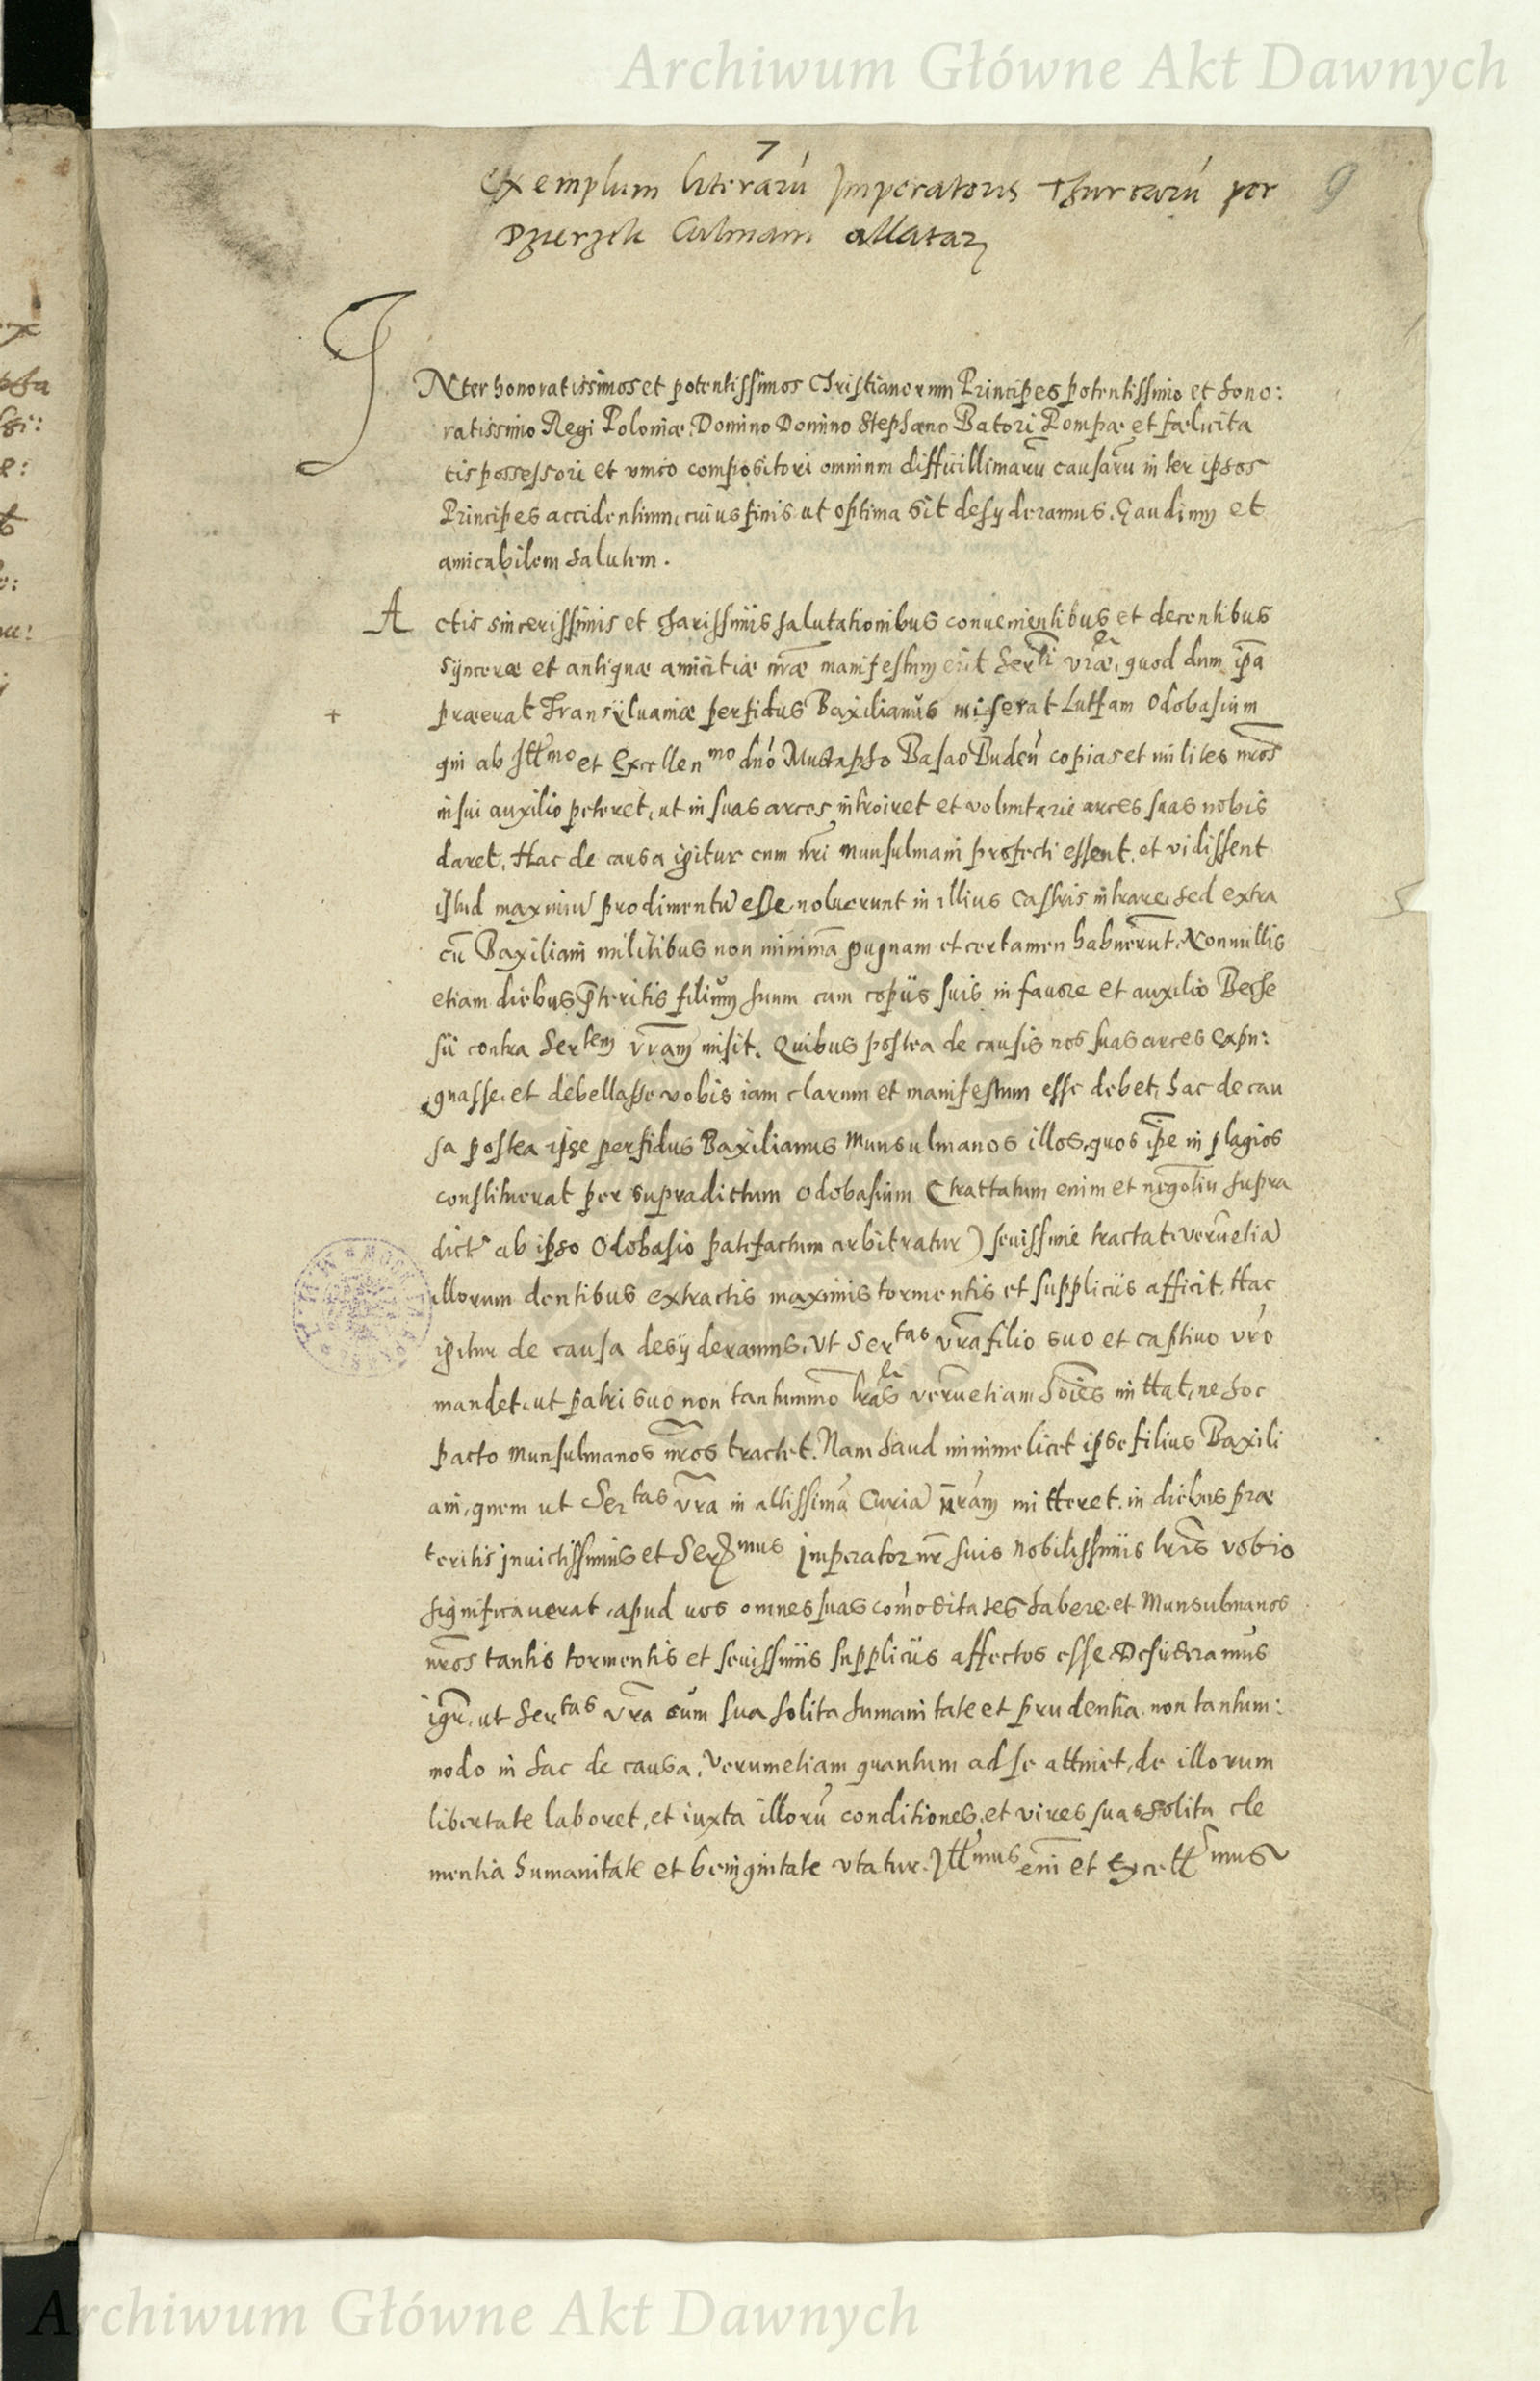 Archiwum Główne Akt Dawnych
7
Exemplum literarú Imperatoris Thurcarú per
9
allatar
INter honoratissimos et potentissimos Christianorum Principes potentissimo et hono:
ratissimo Regi Poloniæ, Domino Domino Stephano Batori Pompæ et fælicita
tis possessori et vnico compositori omnium difficillimarũ causarũ inter ipsos
Principes accidentium, cuius finis ut optima sit desyderamus. Gaudium et
amicabilem salutem.
Actis sincerissimis et charissimis salutationibus convenientibus et decentibus
synceræ et antiquæ amicitiæ nr̃æ manifestum erit Serti vr̃æ, quod dum ip̃a
+ præerat Transÿluaniæ perfidus Baxilianus miserat Lutfam Odobasium
qui ab Illmo et Excellenmo dnó Mustapho Basao Budeñ copias et milites nr̃os
in sui auxilio peteret, ut in suas arces introiret et voluntarie arces suas nobis
daret. Hac de causa igitur cum nr̃i Munsulmani profecti essent, et vidissent
istud maximũ prodimentũ esse, noluerunt in illius castris intrare, sed extra
cũ Baxiliani militibus non minimã pugnam et certamen habuerũt. Nonnullis
etiam diebus p̃teritis filium suum cum copiis suis in favore et auxilio Beche
sii contra Sertem vr̃am misit. Quibus postea de causis nos suas arces expu:
gnasse, et debellasse vobis iam clarum et manifestum esse debet, hac de cau
sa postea ipse perfidus Baxilianus Munsulmanos illos, quos ip̃e in plagios
constituerat per supradictum Odobasium (trattatum enim et negotiũ supra
dictũ ab ipso Odobasio patefactum arbitratur) sevissime tractat, verũetiã
illorum dentibus extractis maximis tormentis et suppliciis afficit. Hac
igitur de causa desyderamus, vt Sertas vr̃a filio suo et captivo vr̃o
mandet, ut patri suo non tantummo lr̃as verũetiam hoĩes mittat, ne hoc
pacto Munsulmanos nr̃os tractet. Nam haud minime licet ipse filius Baxili
ani, quem ut Sertas vr̃a in altissimã Curiã nr̃am mitteret, in diebus præ
teritis invictissimus et Sermus Imperator nr̃ suis nobilissimis lr̃is vobis
significaverat, apud vos omnes suas comoditates habere, et Munsulmanos
nr̃os tantis tormentis et sevissimis suppliciis affectos esse. Desideramus
igr̃, ut Sertas vr̃a cum sua solita humanitate et prudentia, non tantum:
modo in hac de causa, verumetiam quantum ad se attinet, de illorum
libertate laboret, et iuxta illorũ conditiones, et vires suas solita cle
mentia humanitate et benignitate vtatur. Illmus enĩ et Excellmus
Archiwum Główne Akt Dawnych